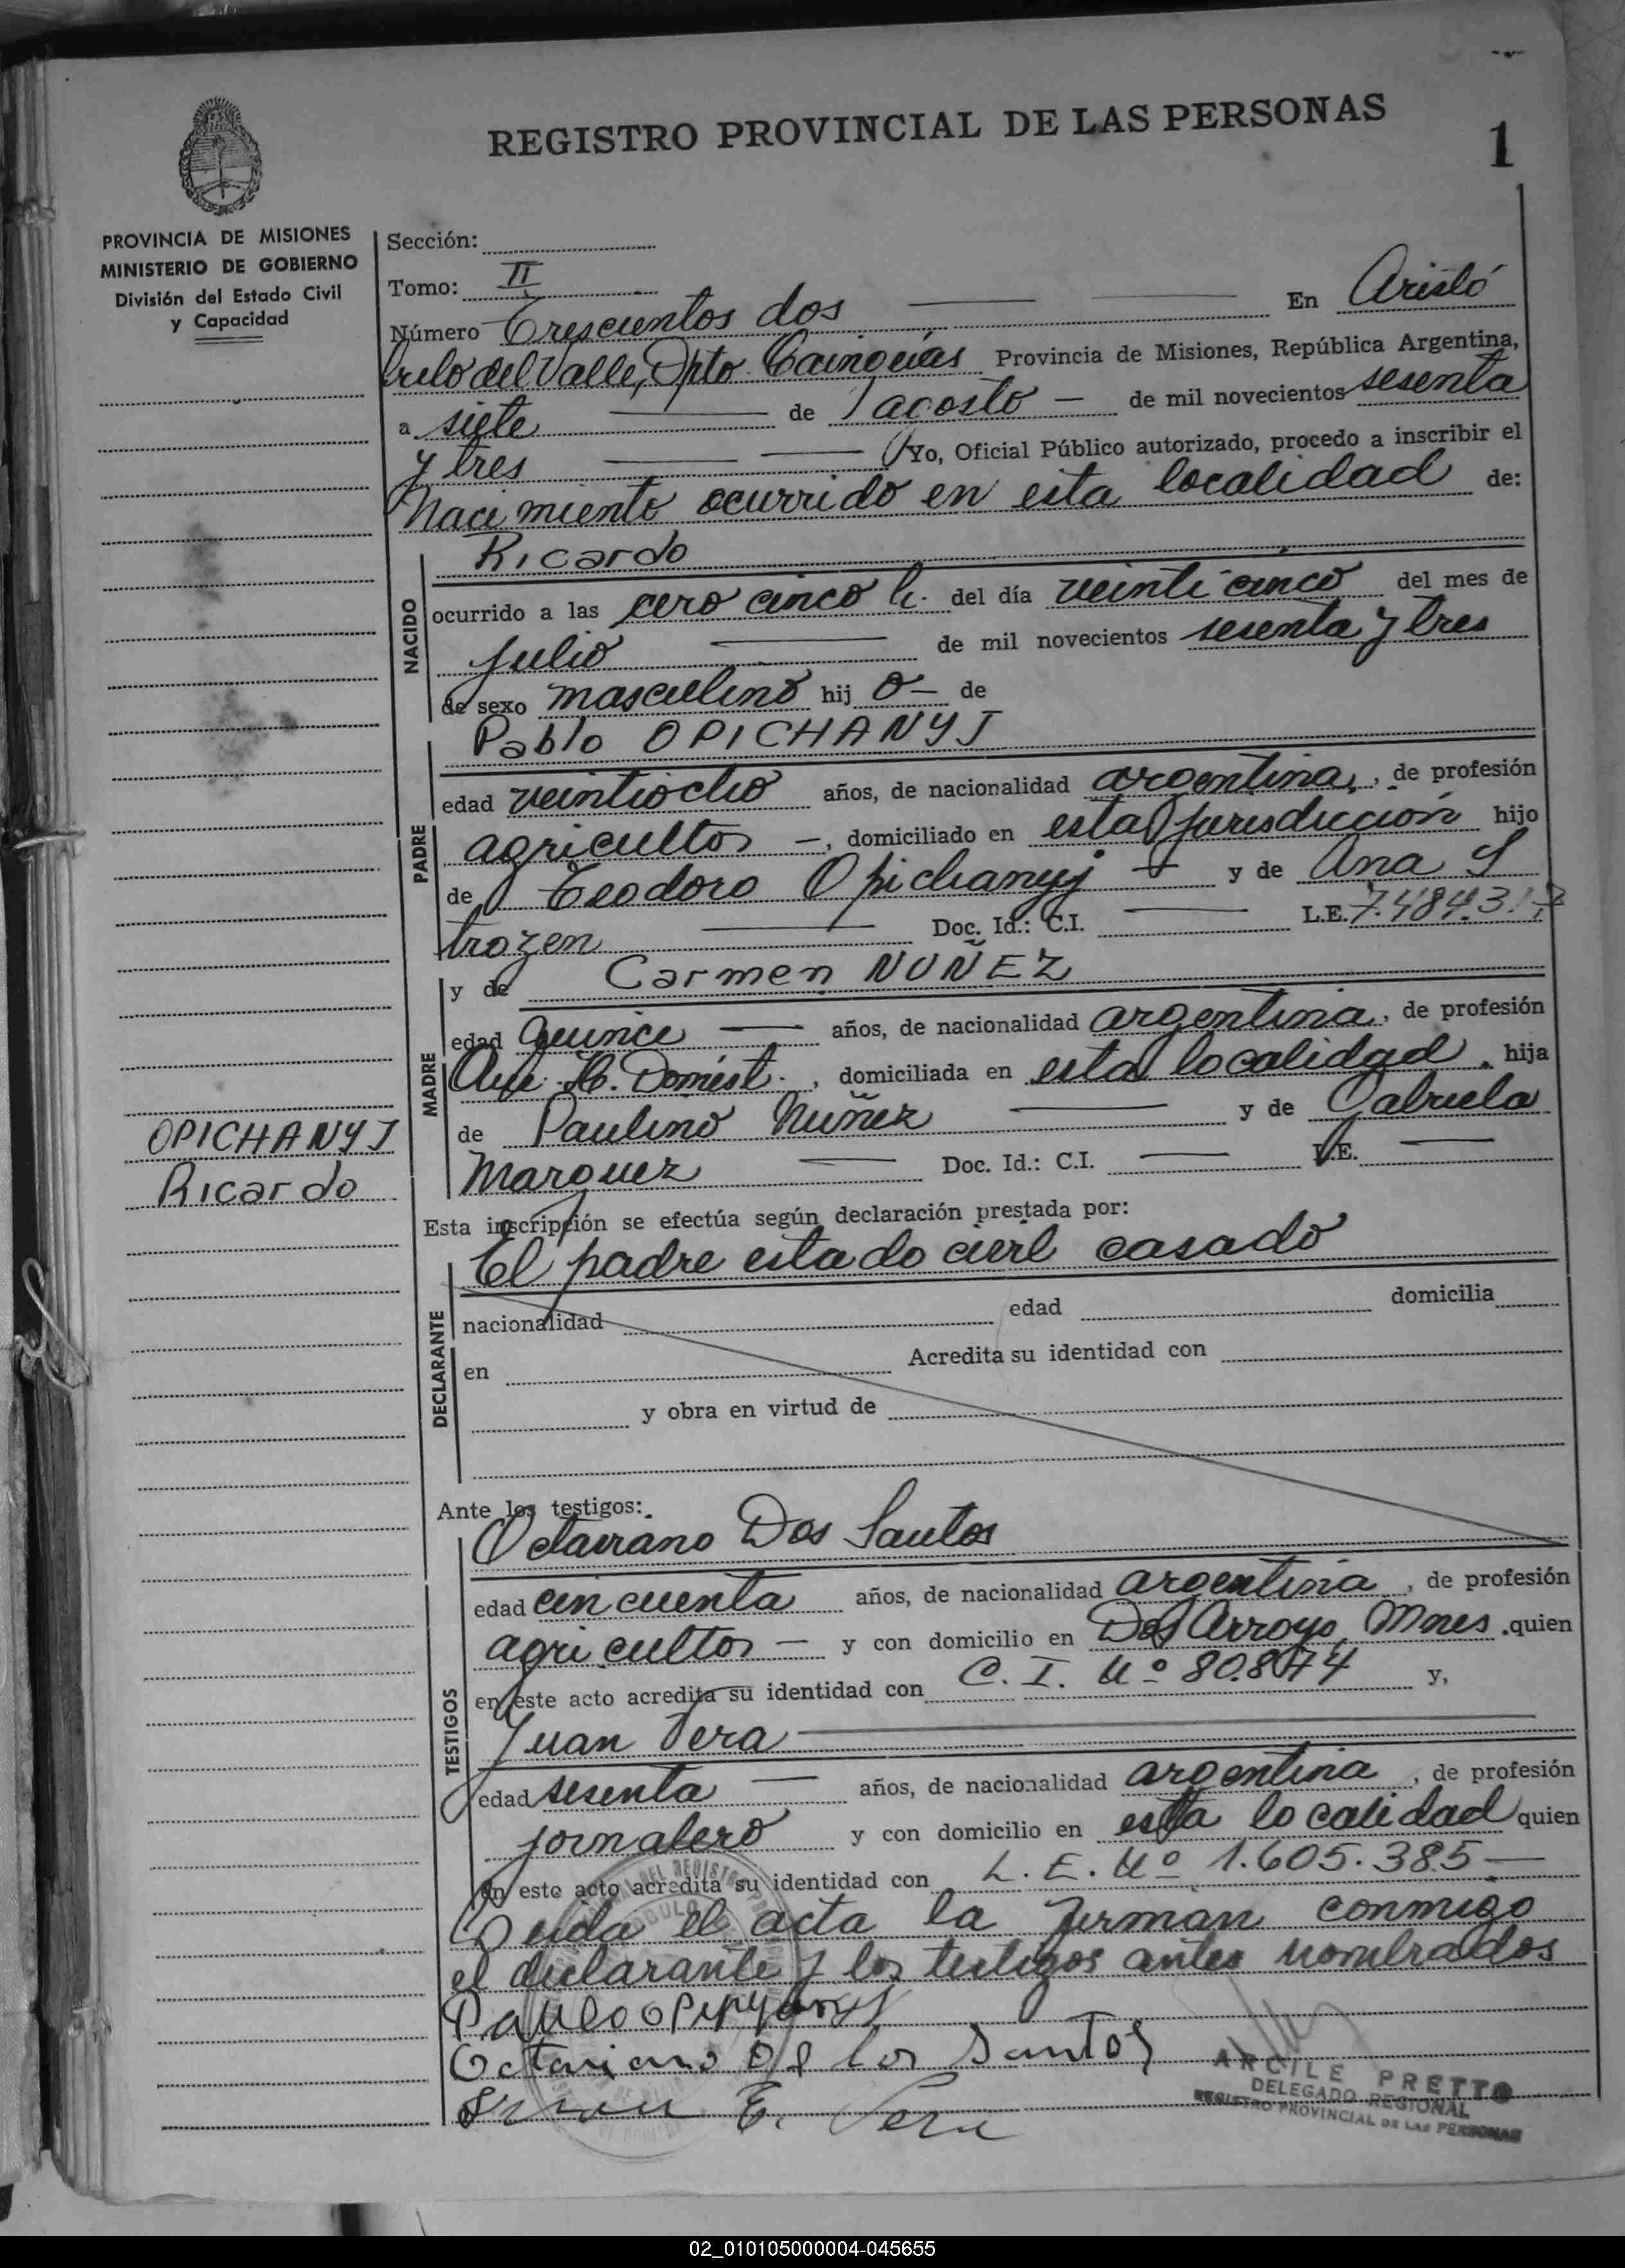 REGISTRO PROVINCIAL DE LAS PERSONAS
1
PROVINCIA DE MISIONES
MINISTERIO DE GOBIERNO
División del Estado Civil
y Capacidad
Sección:
Tomo: II
Número Trescientos dos En Aristó
bulo del Valle, Dpto. Cainguás Provincia de Misiones, República Argentina,
a siete de agosto de mil novecientos sesenta
y tres Yo, Oficial Público autorizado, procedo a inscribir el
Nacimiento ocurrido en esta localidad de:
NACIDO
Ricardo
ocurrido a las cero cinco h. del día veinticinco del mes de
julio de mil novecientos sesenta y tres
de sexo masculino hij o de
PADRE
Pablo OPICHANYJ
edad veintiocho años, de nacionalidad argentina, de profesión
agricultor, domiciliado en esta jurisdicción hijo
de Teodoro Opichanyj y de Ana S
trozen Doc. Id.: C.I. L.E.
MADRE
y de Carmen NUÑEZ
edad quince años, de nacionalidad argentina, de profesión
H. Domést., domiciliada en esta localidad, hija
de Paulino Nuñez y de Gabriela
Marquez Doc. Id.: C.I. L.E.
OPICHANYJ
Ricardo
Esta inscripción se efectúa según declaración prestada por:
DECLARANTE
El padre estado civil casado
nacionalidad edad domicilia
en Acredita su identidad con
y obra en virtud de
Ante los testigos:
TESTIGOS
Octaviano Dos Santos
edad cincuenta años, de nacionalidad argentina, de profesión
agricultor y con domicilio en Dos Arroyo, Mnes. quien
en este acto acredita su identidad con C. I. Nº 80.874 y,
Juan Vera
edad sesenta años, de nacionalidad argentina, de profesión
jornalero y con domicilio en esta localidad quien
en este acto acredita su identidad con L. E. Nº 1.605.385
Leida el acta la firman conmigo
el declarante y los testigos antes nombrados
Octaviano De los Santos
Juan E. Vera
ARCILE PRETTO
DELEGADO REGIONAL
REGISTRO PROVINCIAL DE LAS PERSONAS
02_010105000004-045655